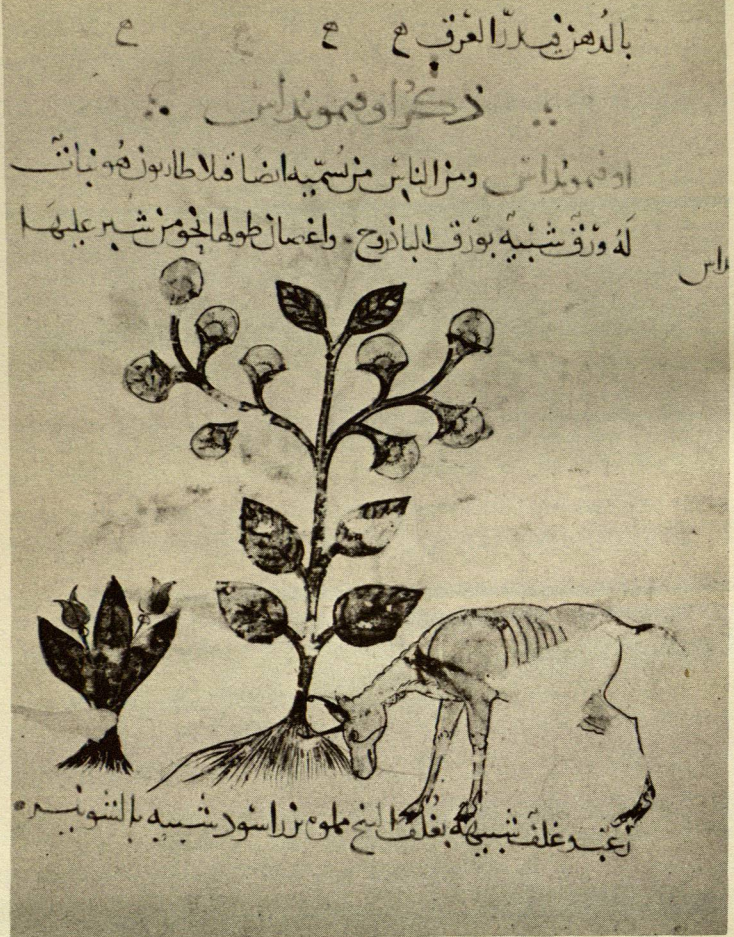 بالدهن فيدرّ العرق ح ح ح ح
ذكر اوقيمونداس
اوقيمونداس ومن الناس من يُسمّيه ايضا فيلاطاريون هو نبات
لهُ ورق شبيه بورق الباذروج واغصان طولها نحو من شبر عليها
داس
زغب وغلف شبيهة بغُلف البنج مملوه بزرا اسود شبيه بالشونيز